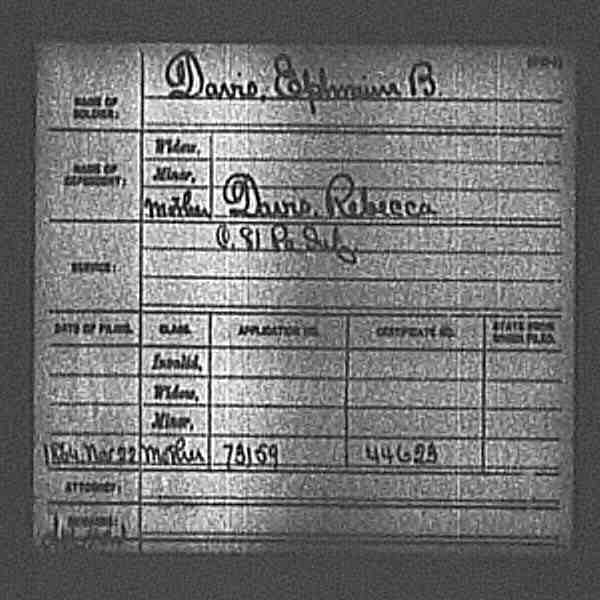 Davis, Ephraim B.
NAME OF
SOLDIER:
Widow,
NAME OF
DEPENDENT:
Minor,
Mother Davis, Rebecca
C. 81 Pa Inf.
SERVICE:
DATE OF FILING. CLASS. APPLICATION NO. CERTIFICATE NO. STATE FROM
WHICH FILED.
Invalid,
Widow,
Minor,
1864 Nov 22 Mother 73159 44623
ATTORNEY:
REMARKS: